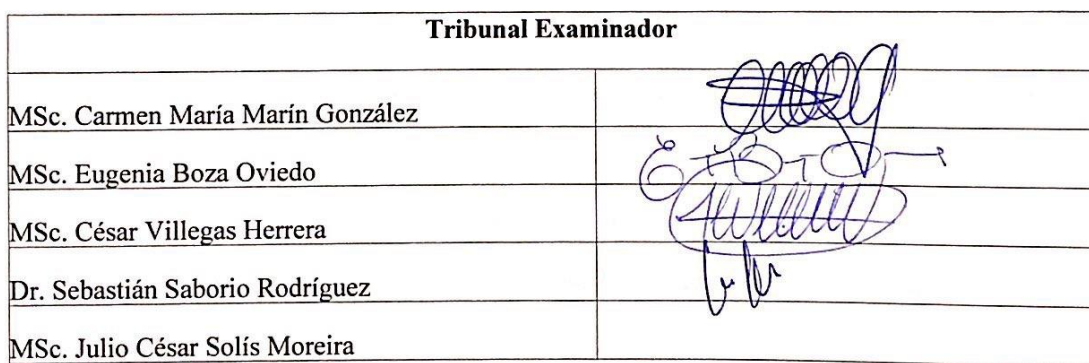 Tribunal Examinador
MSc. Carmen María Marín González
MSc. Eugenia Boza Oviedo
MSc. César Villegas Herrera
Dr. Sebastián Saborio Rodríguez
MSc. Julio César Solís Moreira